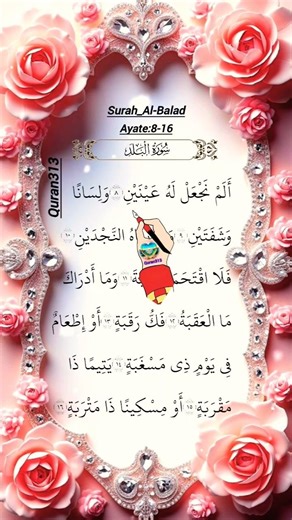 Surah_Al-Balad
Ayate:8-16
سُورَةُ الْبَلَدِ
Quran313
أَلَمْ نَجْعَلْ لَهُ عَيْنَيْنِ ٨ وَلِسَانًا
وَشَفَتَيْنِ ٩ هُ النَّجْدَيْنِ ١٠
فَلَا اقْتَحَمَ ةَ ١١ وَمَا أَدْرَاكَ
مَا الْعَقَبَةُ ١٢ فَكُّ رَقَبَةٍ ١٣ أَوْ إِطْعَامٌ
فِي يَوْمٍ ذِي مَسْغَبَةٍ ١٤ يَتِيمًا ذَا
مَقْرَبَةٍ ١٥ أَوْ مِسْكِينًا ذَا مَتْرَبَةٍ ١٦